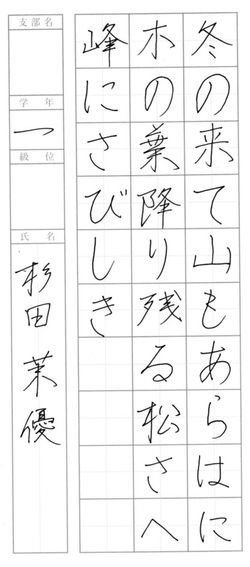 冬の来て山もあらはに
木の葉降り残る松さへ
峰にさびしき
支部名
学年
一
級位
氏名
杉田茉優